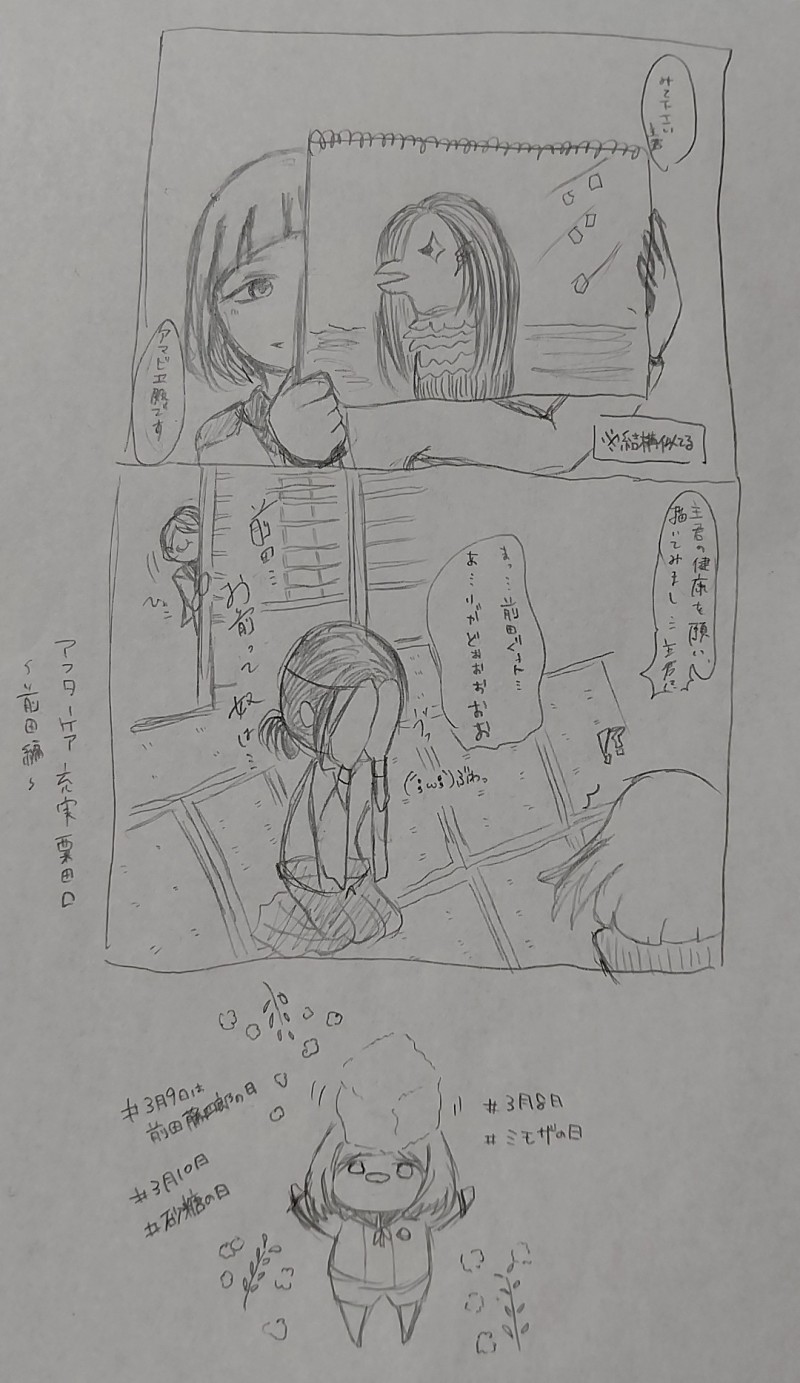 みて下さい
主君
アマビエ殿です
※結構似てる
主君の健康を願い、
描いてみまし…主君!?
まっ…前田ぐぅん…
あ…りがどぉぉぉぉぉ
前田…
お前って奴は…
ひょこ
ブワッ
(´;ω;`)ぶわっ
!?
アフターケアー充実 粟田口
~前田編~
#3月9日は
前田藤四郎の日
#3月8日
#ミモザの日
#3月10日
#砂糖の日